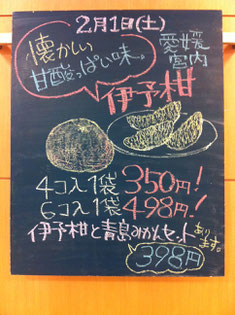 2月1日(土)
懐かしい
甘酸っぱい味。
愛媛
宮内
伊予柑
4コ入1袋350円!
6コ入1袋498円!
伊予柑と青島みかんセット
あります。
398円